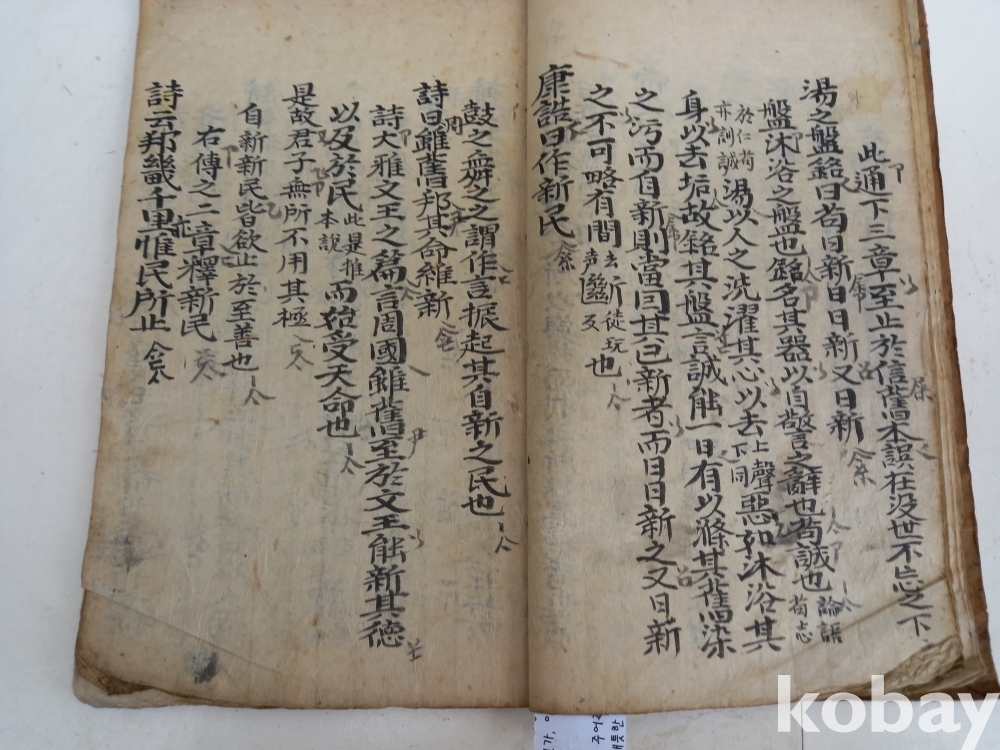 此通下三章至止於信舊本誤在没世不忘之下
湯之盤銘曰苟日新日日新又日新
盤沐浴之盤也銘名其器以自警之辭也苟誠也論語苟志
於仁苟亦訓誠湯以人之洗濯其心以去上聲下同惡如沐浴其
身以去垢故銘其盤言誠能一日有以滌其舊染
之污而自新則當因其已新者而日日新之又日新
之不可略有間去声斷徒玩反也
康誥曰作新民
鼓之舞之之謂作言振起其自新之民也
詩曰周雖舊邦其命維新
詩大雅文王之篇言周國雖舊至於文王能新其德
以及於民此是推本說而始受天命也
是故君子無所不用其極
自新新民皆欲止於至善也
右傳之二章釋新民
詩云邦畿千里惟民所止
kobay